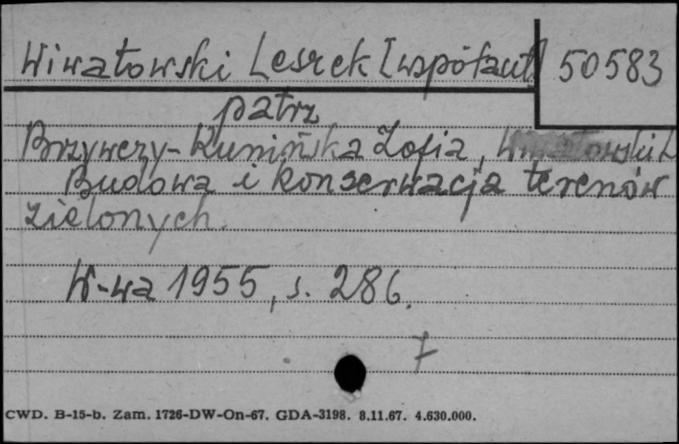 Wiwatowski Leszek [współaut] 50583
patrz
Brzywczy-Kunińska Zofia, Wiwatowski L
Budowa i konserwacja terenów
zielonych.
W-wa 1955, s. 286.
7
CWD. B-15-b. Zam. 1726-DW-On-67. GDA-3198. 8.11.67. 4.630.000.